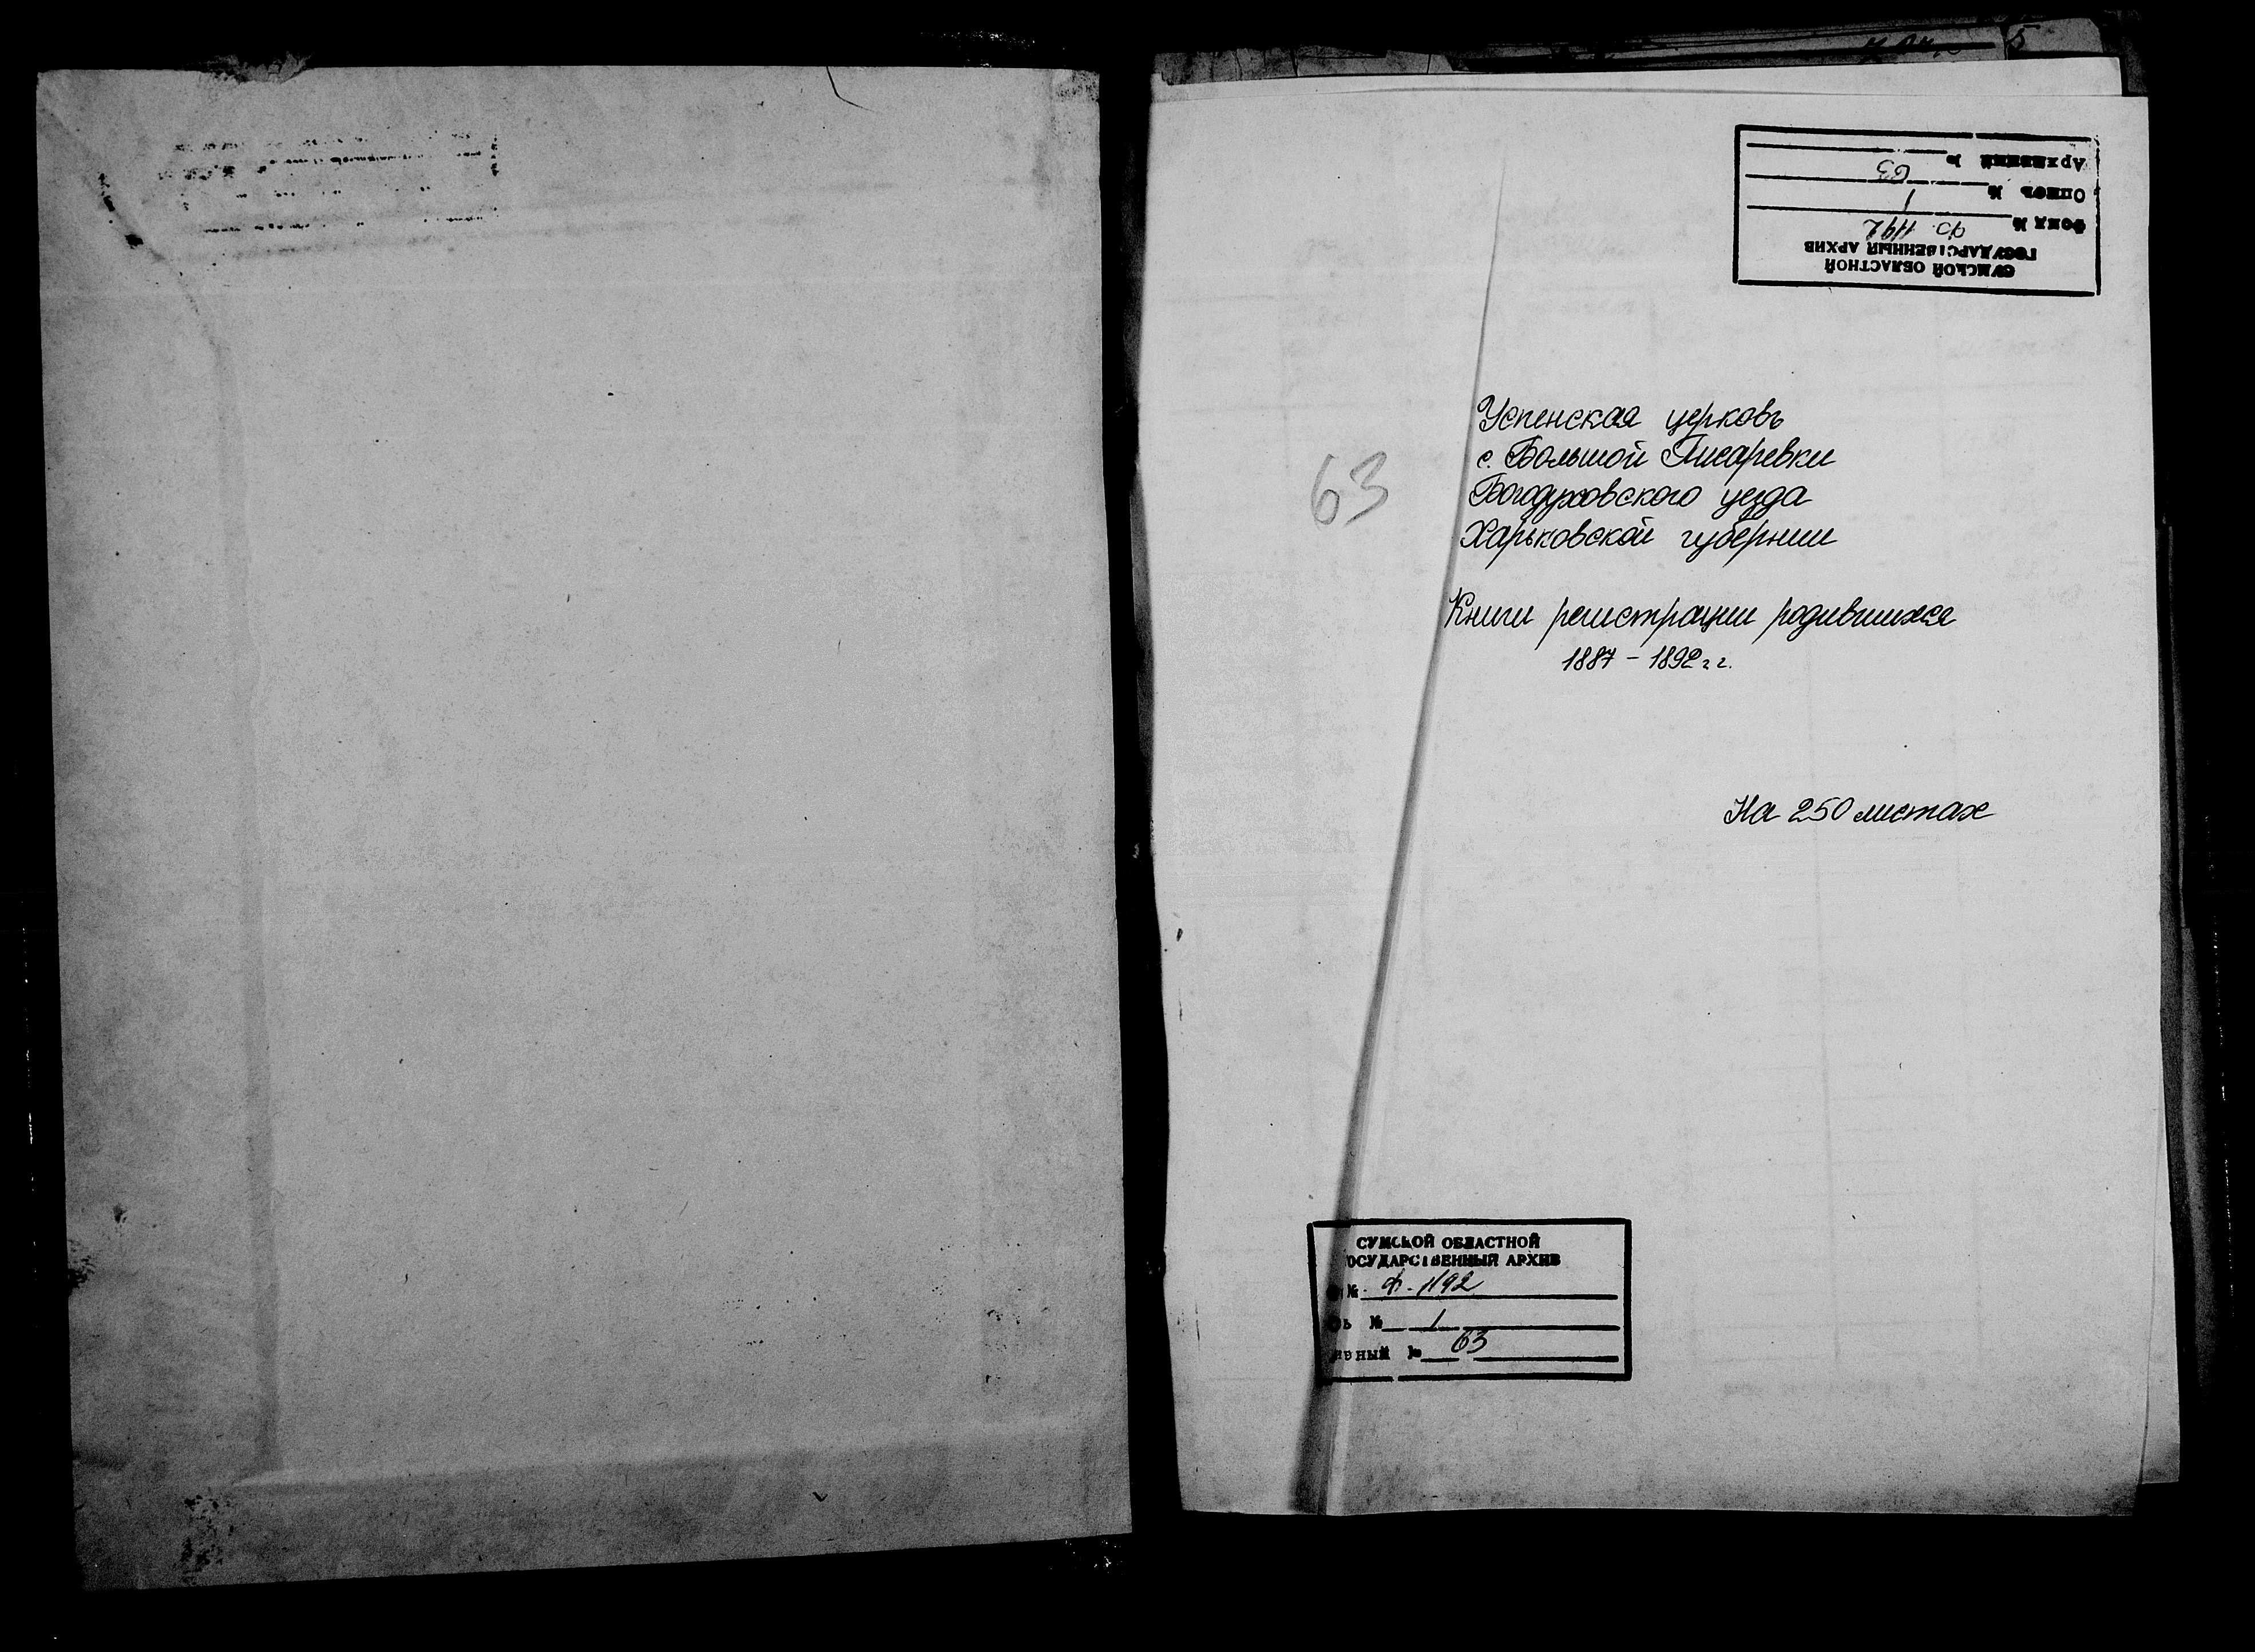 СУМСКОЙ ОБЛАСТНОЙ
ГОСУДАРСТВЕННЫЙ АРХИВ
Фонд № Ф. 1192
Опись № 1
Архивный № 63
Успенская церковь
с. Большой Писаревки
63
Богодуховского уезда
Харьковской губернии
Книги регистрации родившихся
1887 - 1892 г г.
На 250 листах
СУМСКОЙ ОБЛАСТНОЙ
ОСУДАРСТВЕННЫЙ АРХИВ
№ Ф. 1192
ь № 1
ивный № 63